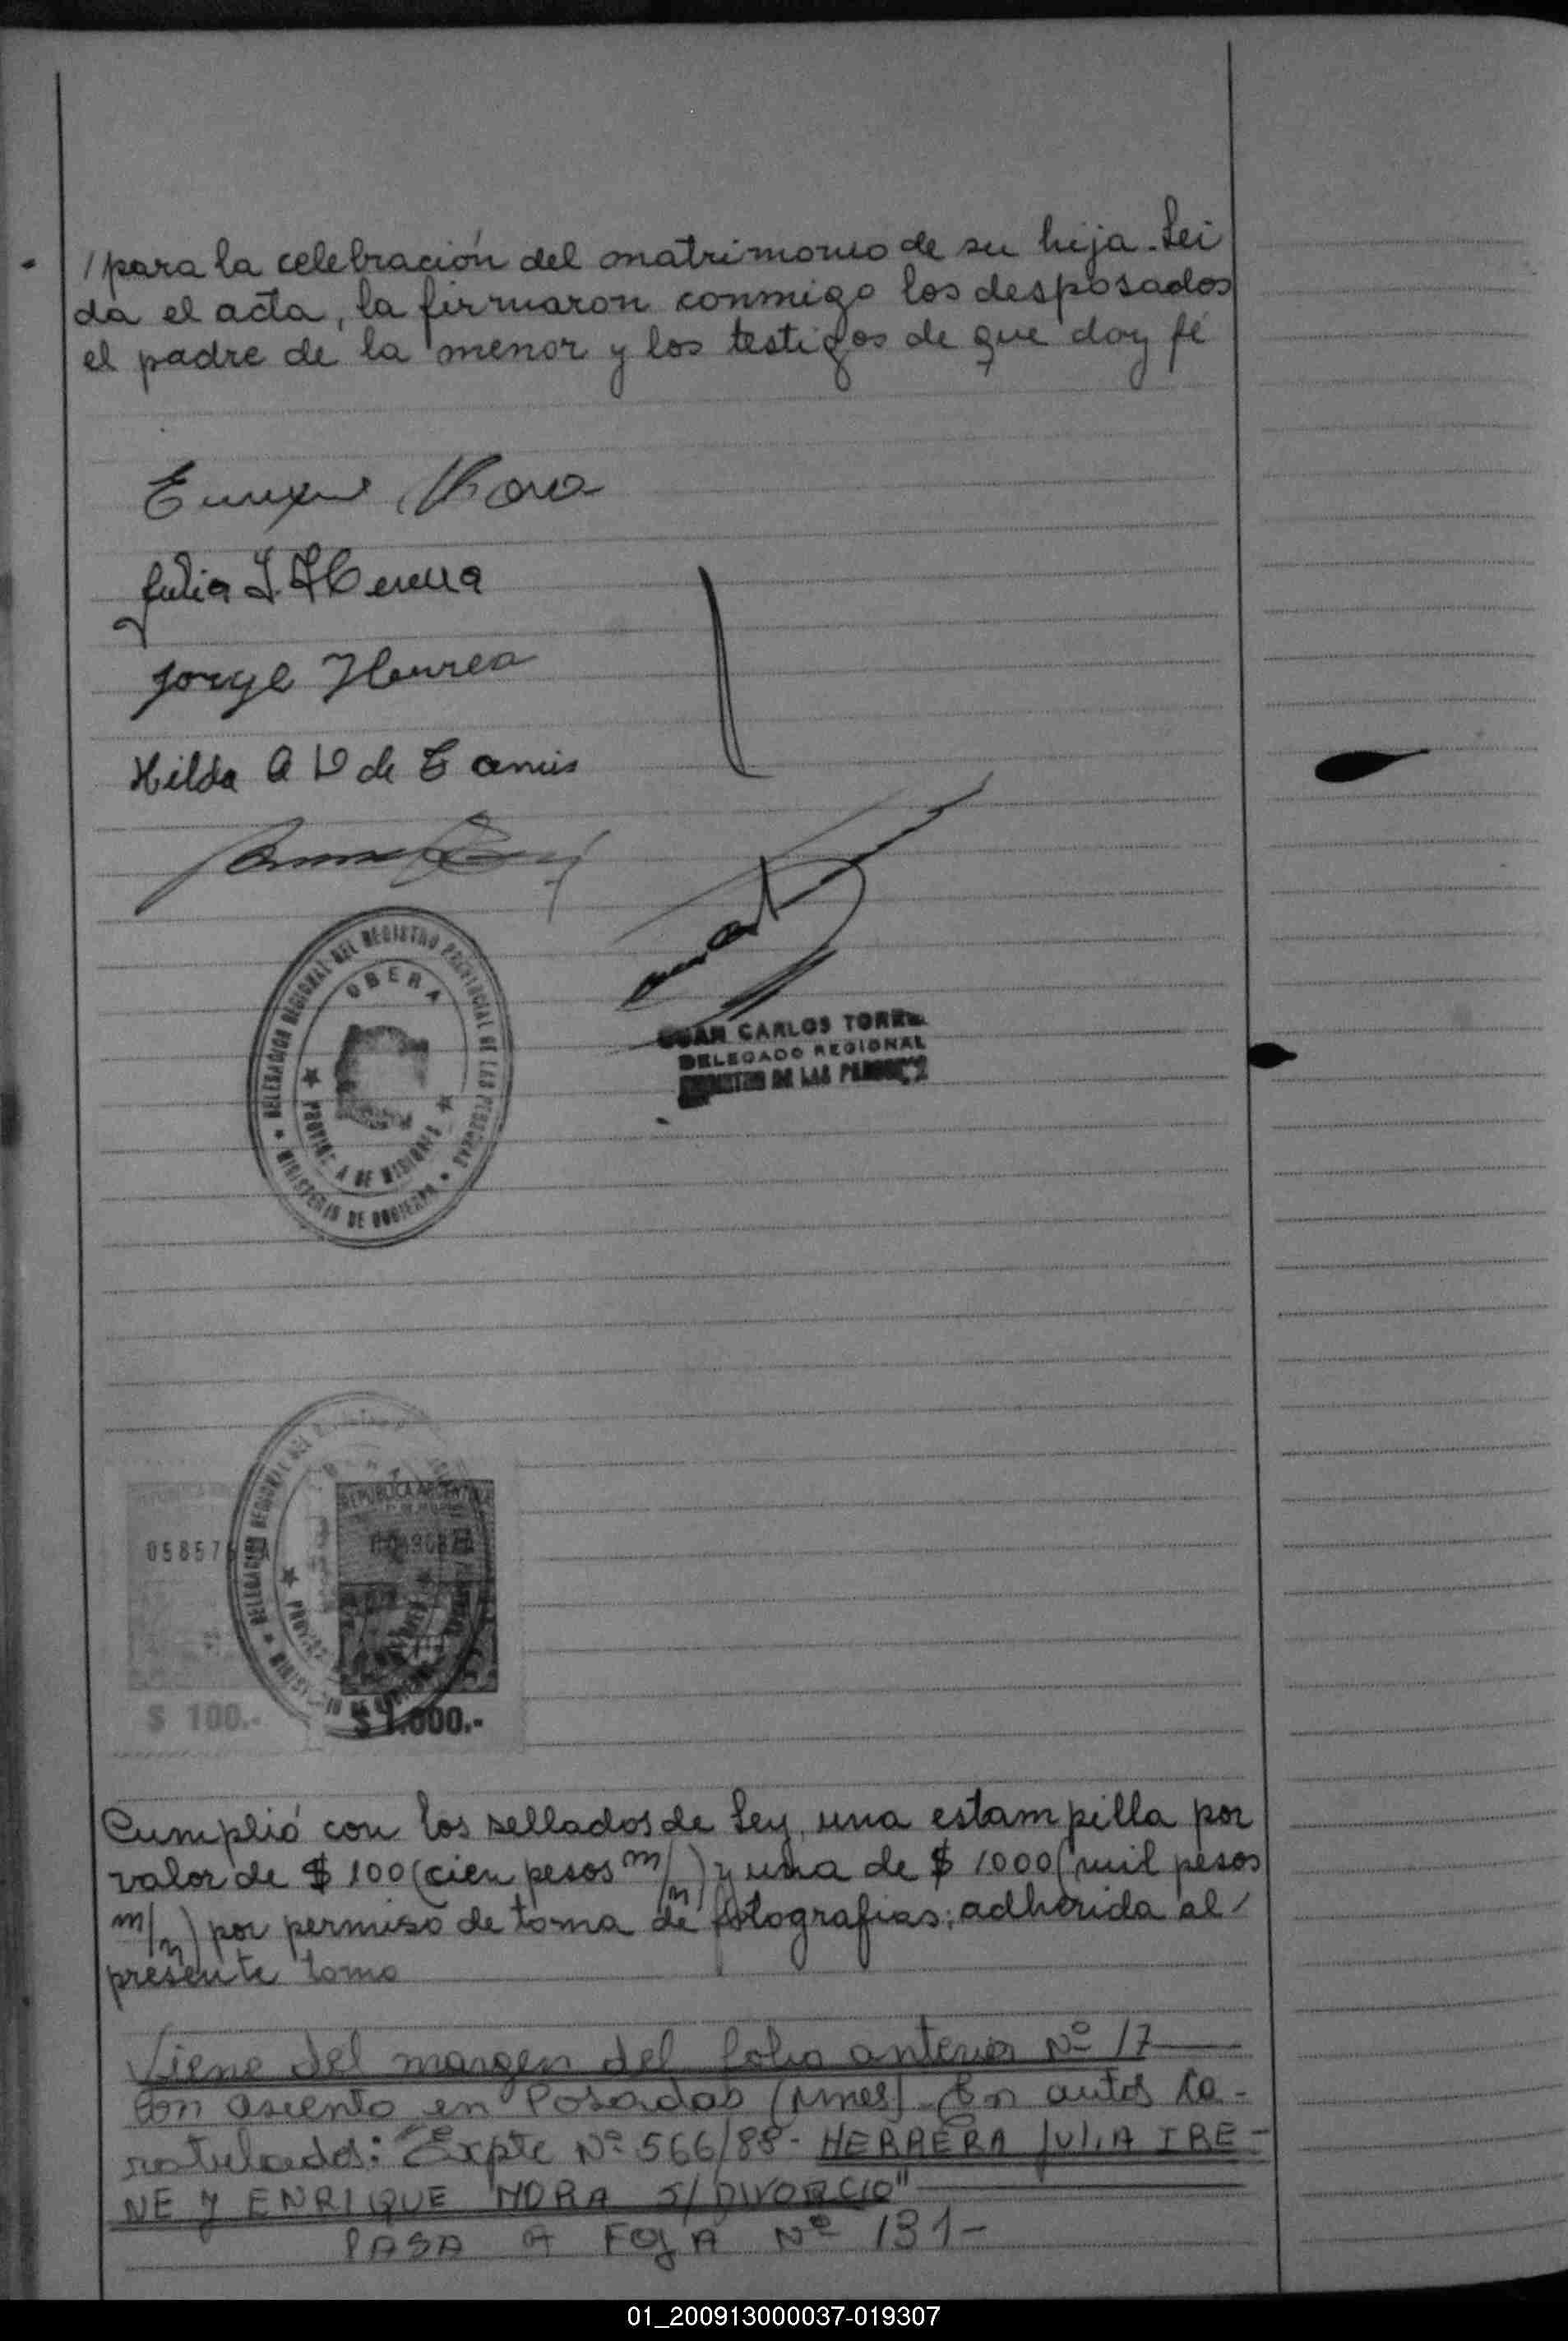 / para la celebración del matrimonio de su hija. Lei
da el acta, la firmaron conmigo los desposados
el padre de la menor y los testigos de que doy fé
Enrique Mora
Julia I. Herrera
Jorge Herrera
Hilda A V de
DELEGACION REGIONAL DEL REGISTRO PROVINCIAL DE LAS PERSONAS
OBERA
PROVINCIA DE MISIONES
MINISTERIO DE GOBIERNO
JUAN CARLOS TORRES
DELEGADO REGIONAL
REGISTRO DE LAS PERSONAS
REPUBLICA ARGENTINA
$ 100.-
$ 1.000.-
Cumplió con los sellados de Ley, una estampilla por
valor de $ 100 (cien pesos m/n) y una de $ 1000 (mil pesos
m/n) por permiso de toma de fotografias; adherida al /
presente tomo
Viene del margen del folio anterior Nº 17
Con asiento en Posadas (Mnes). En autos Ca-
ratulados: "Expte Nº 566/88- HERRERA JULIA IRE-
NE Y ENRIQUE MORA S/ DIVORCIO"
PASA A FOJA Nº 131-
01_200913000037-019307